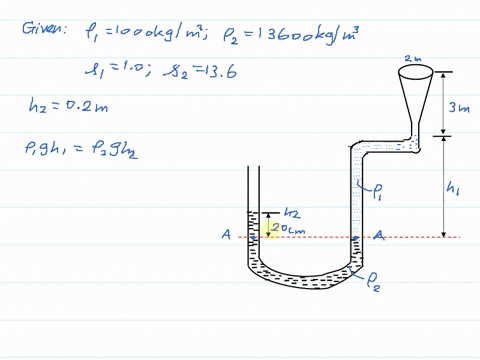 Given: ρ₁ = 1000 kg/m³; ρ₂ = 13600 kg/m³
s₁ = 1.0; s₂ = 13.6
h₂ = 0.2 m
ρ₁gh₁ = ρ₂gh₂
2m
3m
h₁
ρ₁
h₂
20cm
A
A
ρ₂